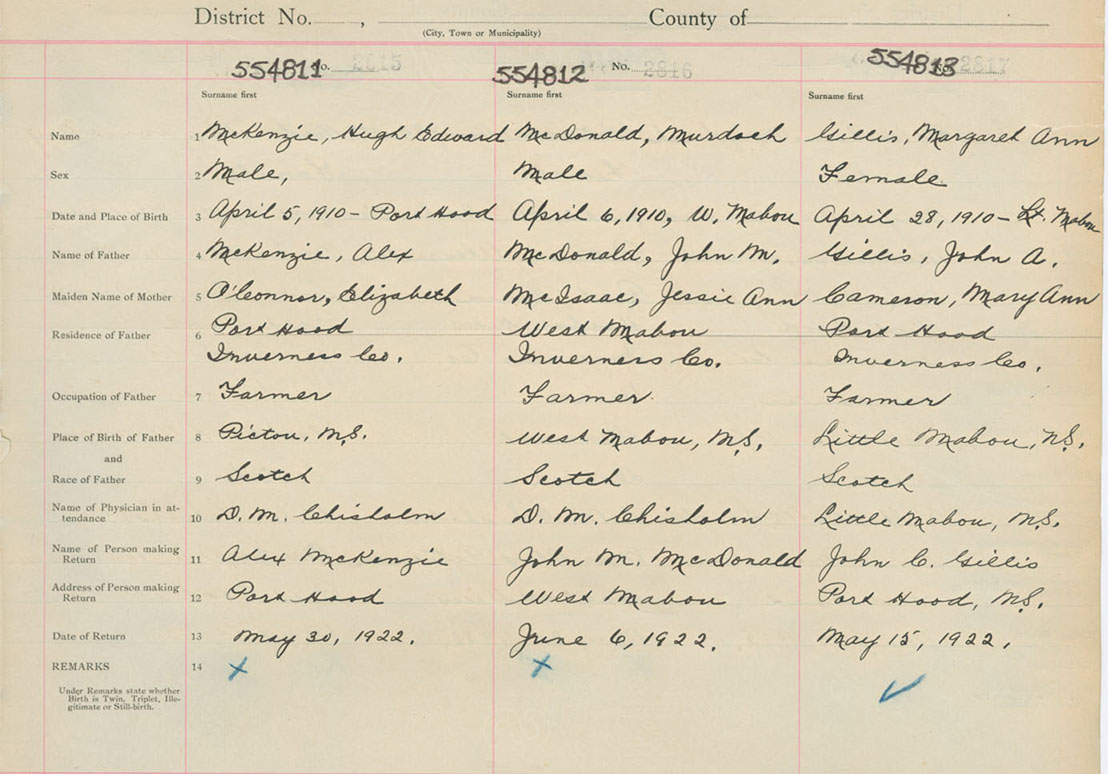 District No. , County of
(City, Town or Municipality)
554811 No. 2815 554812 No. 2816 554813 No. 2817
Surname first Surname first Surname first
Name 1 McKenzie, Hugh Edward McDonald, Murdoch Gillis, Margaret Ann
Sex 2 Male, Male Female
Date and Place of Birth 3 April 5, 1910 - Port Hood April 6, 1910, W. Mabou April 28, 1910 - Lt. Mabou
Name of Father 4 McKenzie, Alex McDonald, John M. Gillis, John A.
Maiden Name of Mother 5 O'Connor, Elizabeth McIsaac, Jessie Ann Cameron, Mary Ann
Residence of Father 6 Port Hood West Mabou Port Hood
Inverness Co. Inverness Co. Inverness Co.
Occupation of Father 7 Farmer Farmer Farmer
Place of Birth of Father 8 Pictou, N.S. West Mabou, N.S. Little Mabou, N.S.
and
Race of Father 9 Scotch Scotch Scotch
Name of Physician in at-
tendance 10 D. M. Chisholm D. M. Chisholm Little Mabou, N.S.
Name of Person making
Return 11 Alex McKenzie John M. McDonald John C. Gillis
Address of Person making
Return 12 Port Hood West Mabou Port Hood, N.S.
Date of Return 13 May 30, 1922. June 6, 1922. May 15, 1922.
REMARKS 14
Under Remarks state whether
Birth is Twin, Triplet, Ille-
gitimate or Still-birth.